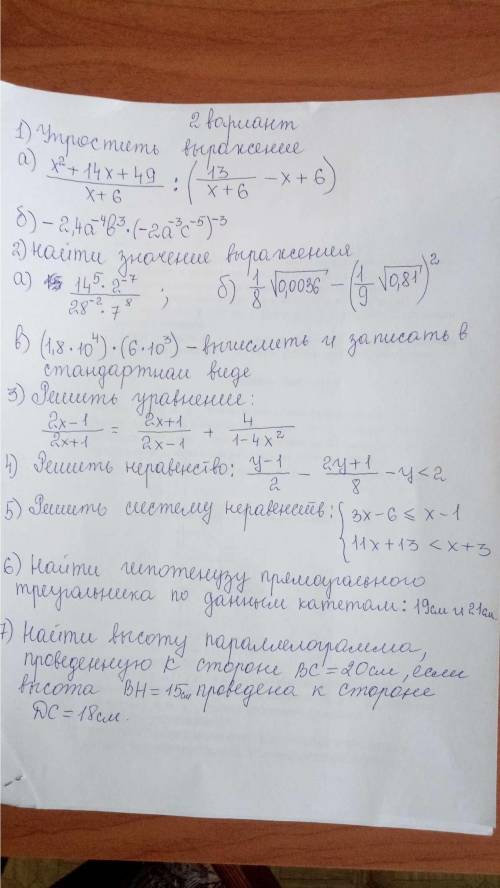 2 вариант
1) Упростить выражение
а) (x² + 14x + 49)/(x + 6) : (13/(x + 6) − x + 6)
б) − 2,4a⁻⁴b³ · (−2a⁻³c⁻⁵)⁻³
2) Найти значение выражения
а) (14⁵ · 2⁻⁷)/(28⁻² · 7⁸) ; б) 1/8 √0,0036 − (1/9 √0,81)²
в) (1,8 · 10⁴) · (6 · 10³) – вычислить и записать в
стандартном виде
3) Решить уравнение:
(2x − 1)/(2x + 1) = (2x + 1)/(2x − 1) + 4/(1 − 4x²)
4) Решить неравенство: (y − 1)/2 − (2y + 1)/8 − y < 2
5) Решить систему неравенств: { 3x − 6 ⩽ x − 1
11x + 13 < x + 3
6) Найти гипотенузу прямоугольного
треугольника по данным катетам: 19см и 21см.
7) Найти высоту параллелограмма,
проведенную к стороне BC = 20см, если
высота BH = 15см проведена к стороне
DC = 18см.